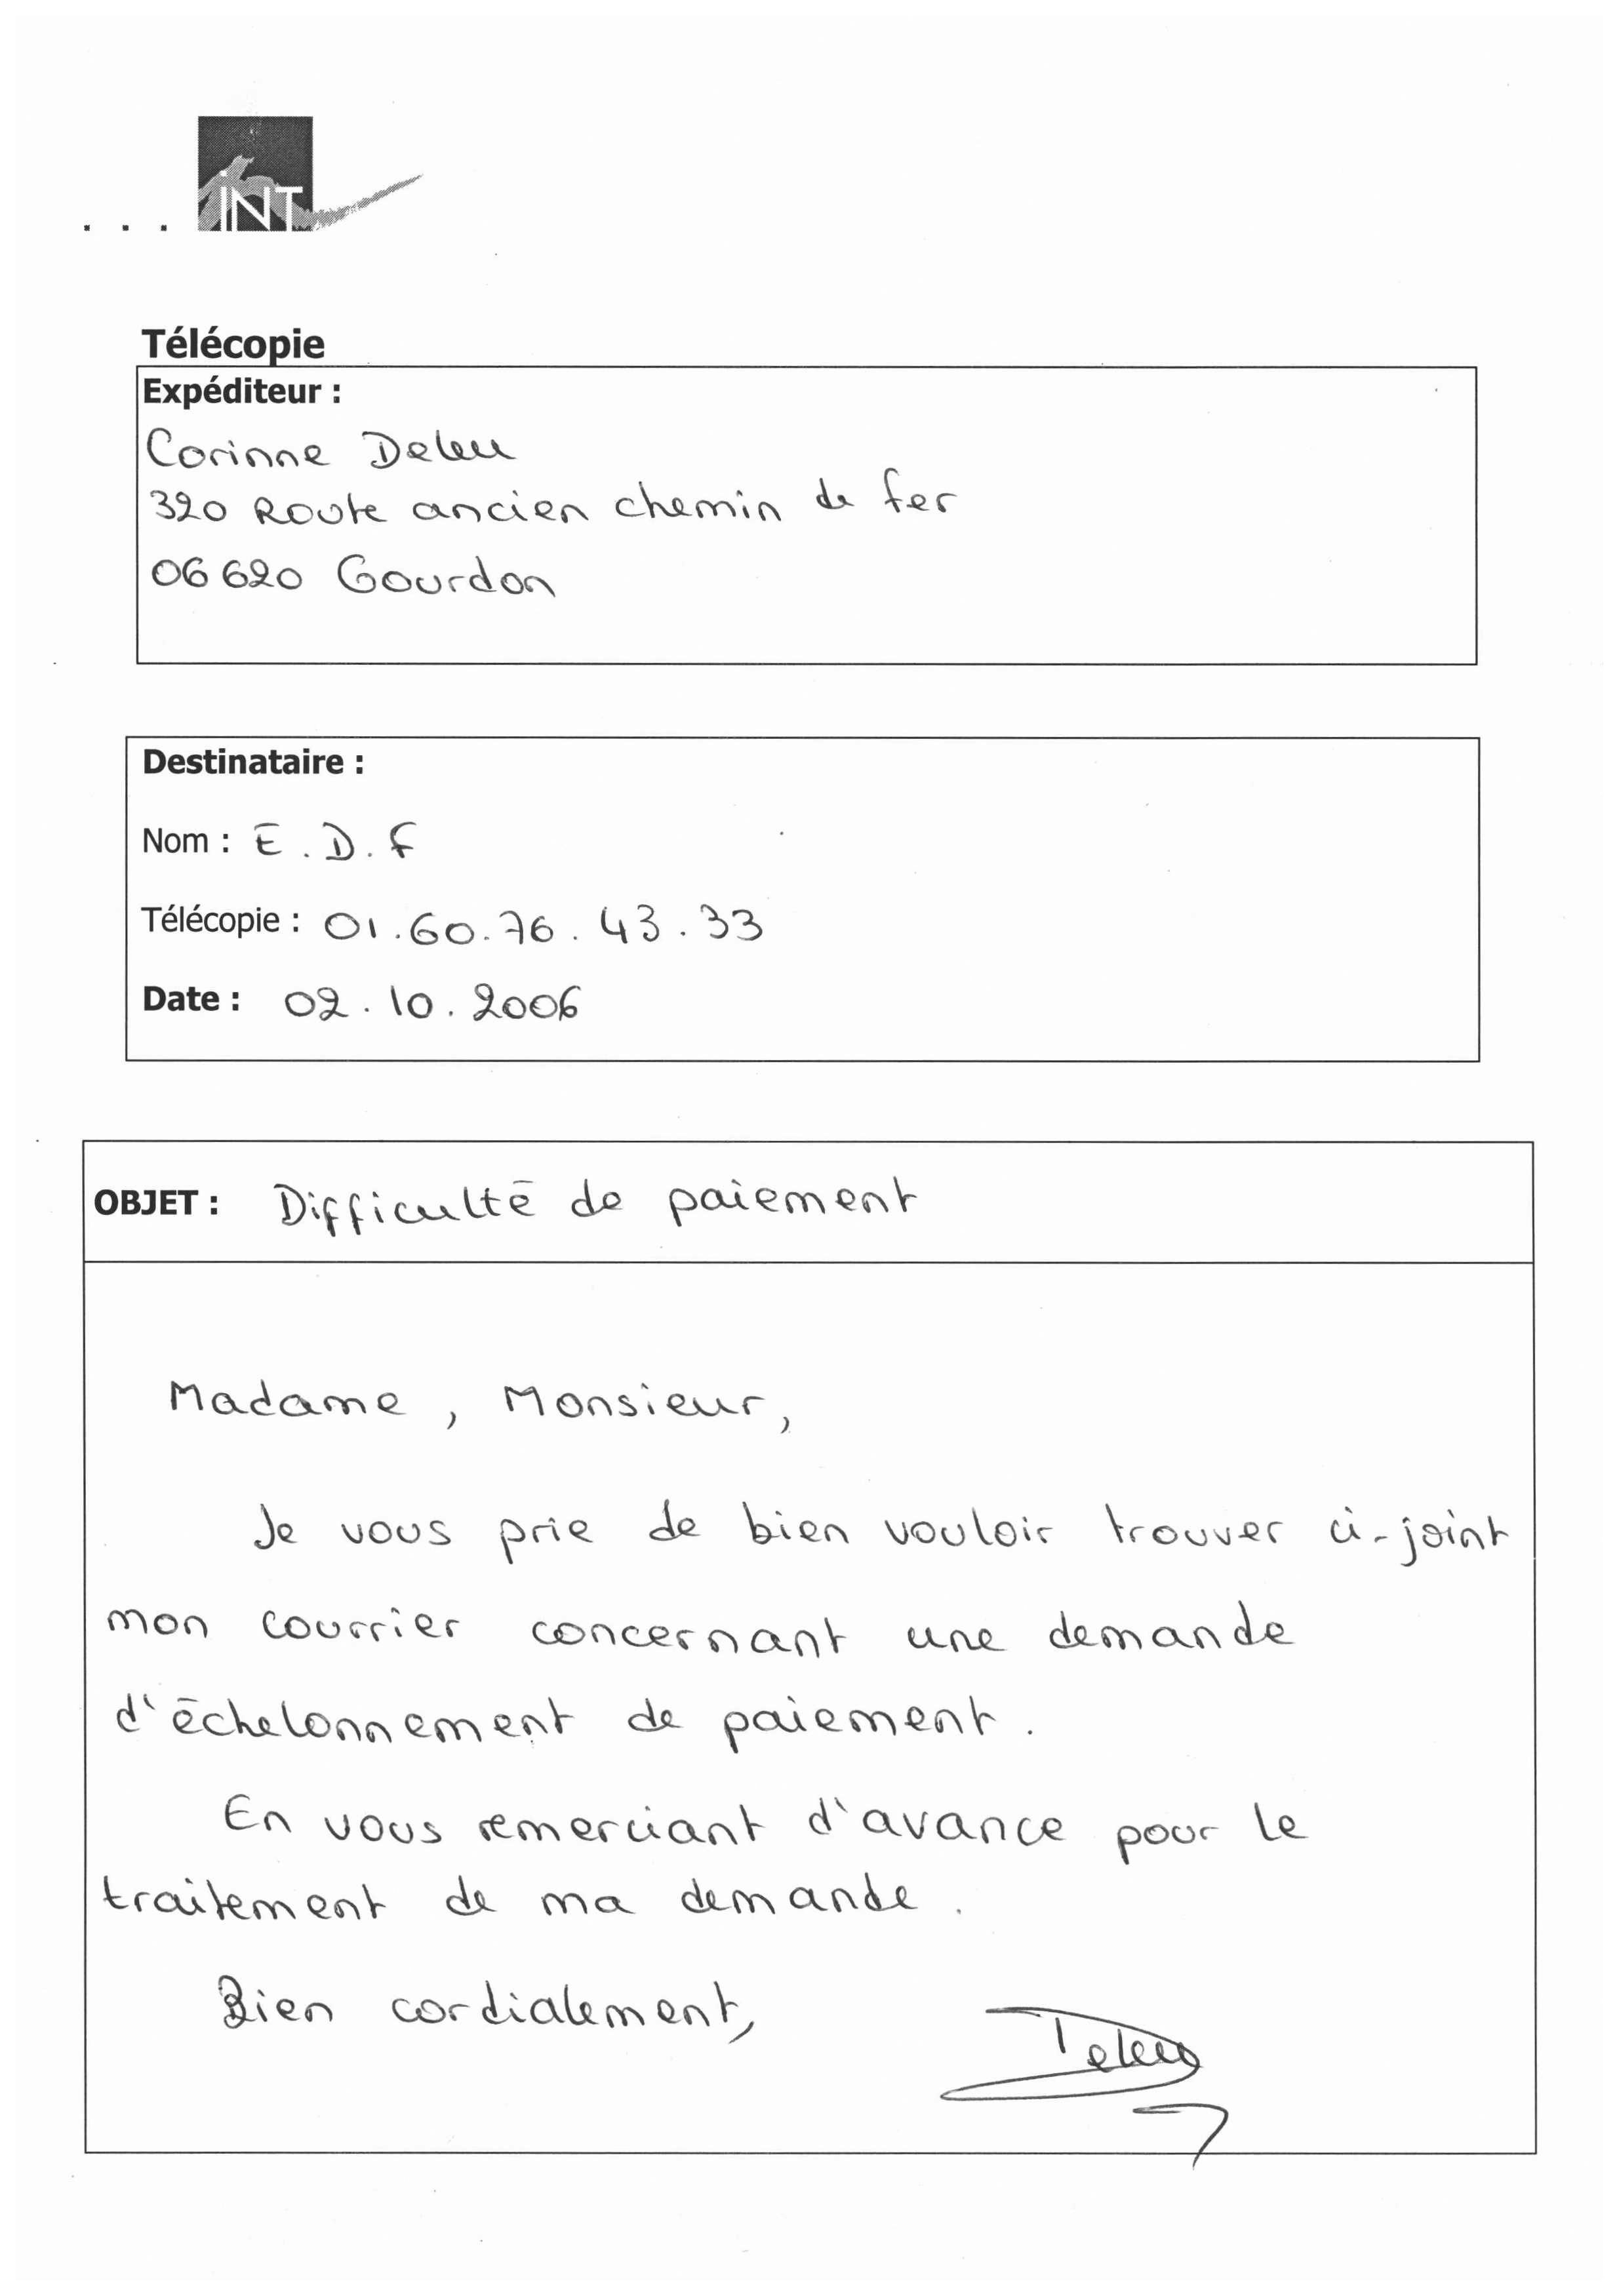 ... iNT
Télécopie
Expéditeur :
Corinne Deleu
320 Route ancien chemin de fer
06620 Gourdon
Destinataire :
Nom : E.D.F
Télécopie : 01.60.76.43.33
Date : 02.10.2006
OBJET : Difficulté de paiement
Madame, Monsieur,
Je vous prie de bien vouloir trouver ci-joint
mon courrier concernant une demande
d'échelonnement de paiement.
En vous remerciant d'avance pour le
traitement de ma demande.
Bien cordialement,
Deleu